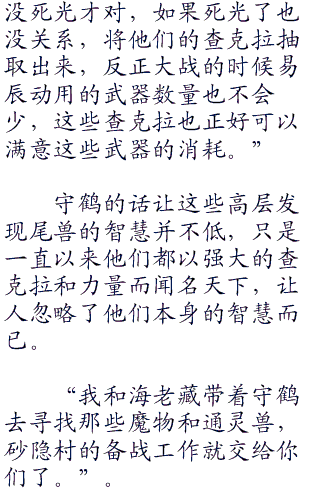 没死光才对，如果死光了也
没关系，将他们的查克拉抽
取出来，反正大战的时候易
辰动用的武器数量也不会
少，这些查克拉也正好可以
满意这些武器的消耗。”
守鹤的话让这些高层发
现尾兽的智慧并不低，只是
一直以来他们都以强大的查
克拉和力量而闻名天下，让
人忽略了他们本身的智慧而
已。
“我和海老藏带着守鹤
去寻找那些魔物和通灵兽，
砂隐村的备战工作就交给你
们了。”。